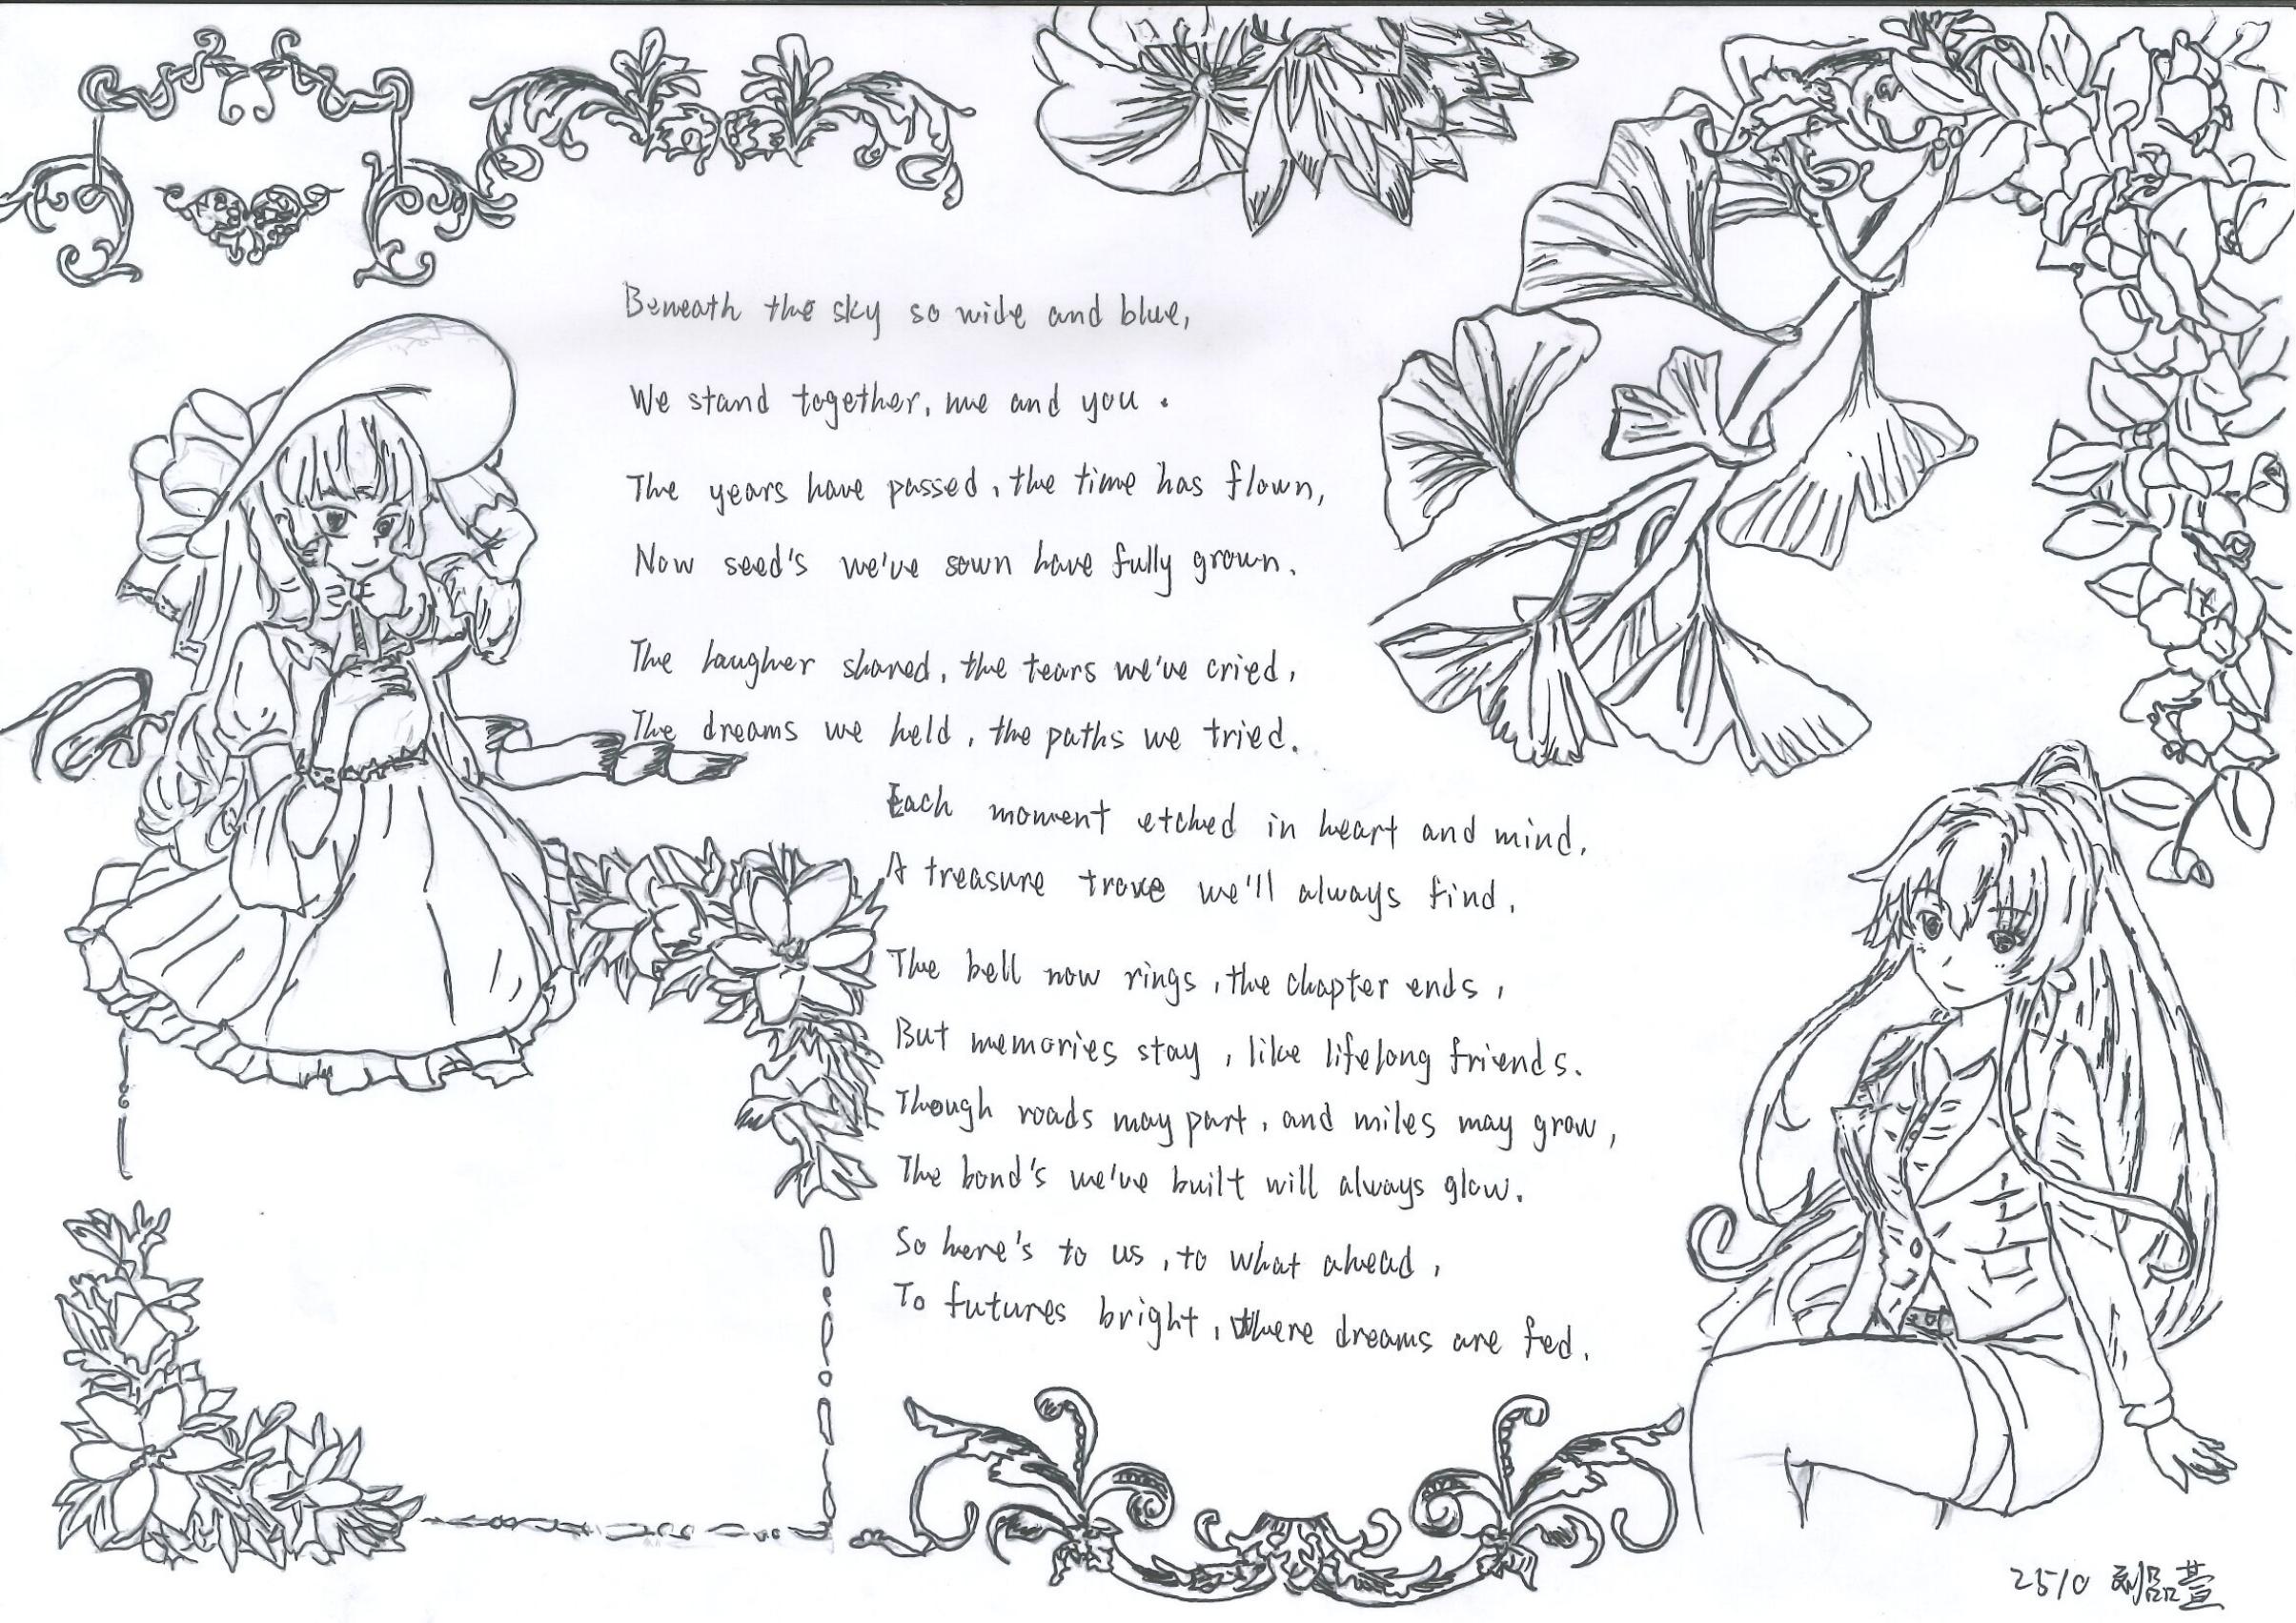 Beneath the sky so wide and blue,
We stand together, me and you.
The years have passed, the time has flown,
Now seed's we've sown have fully grown.
The laugher shared, the tears we've cried,
The dreams we held, the paths we tried.
Each moment etched in heart and mind,
A treasure trove we'll always find.
The bell now rings, the chapter ends,
But memories stay, like lifelong friends.
Though roads may part, and miles may grow,
The bond's we've built will always glow.
So here's to us, to what ahead,
To futures bright, where dreams are fed.
2510 刘品萱